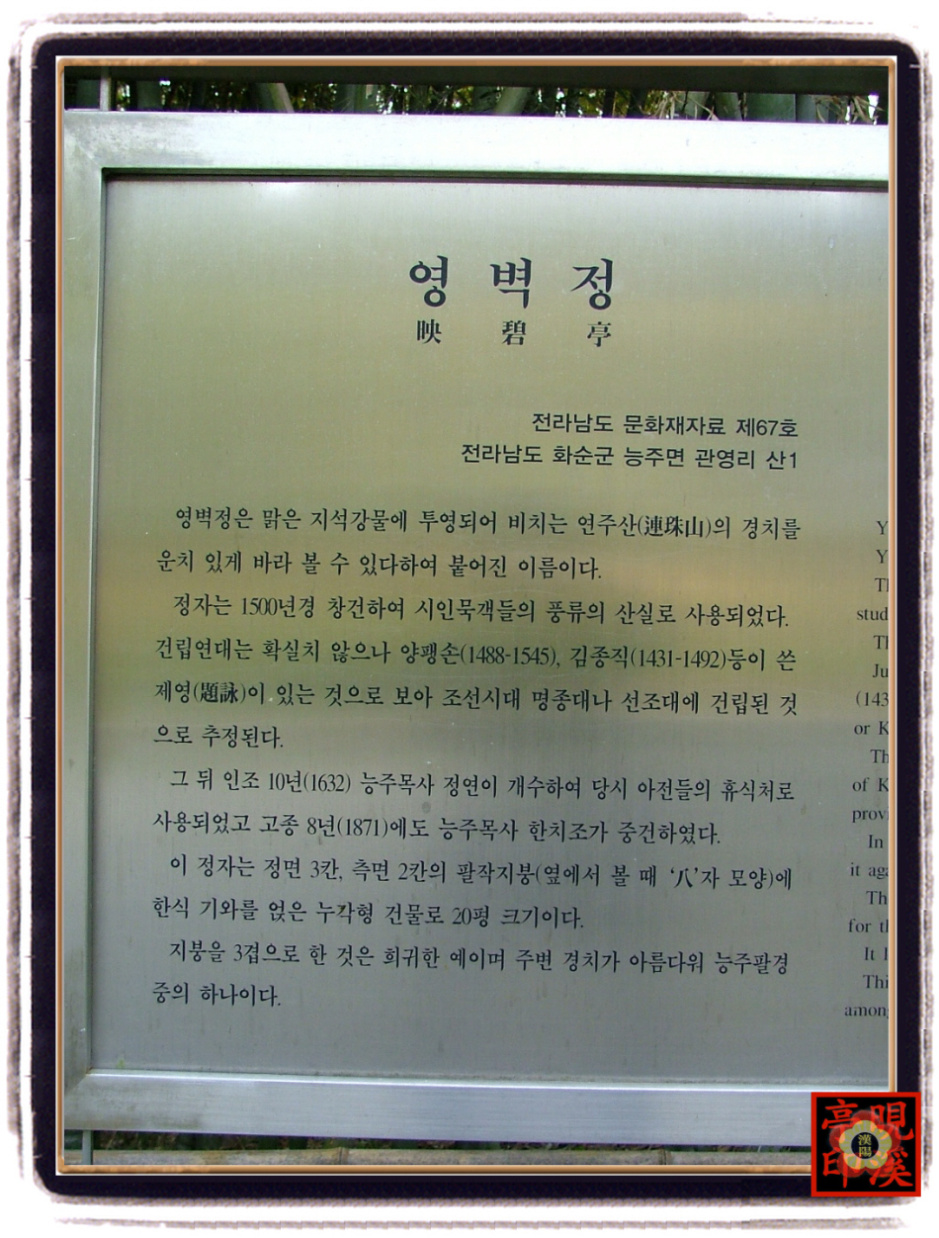 영벽정
映碧亭
전라남도 문화재자료 제67호
전라남도 화순군 능주면 관영리 산1
영벽정은 맑은 지석강물에 투영되어 비치는 연주산(連珠山)의 경치를
운치 있게 바라 볼 수 있다하여 붙어진 이름이다.
정자는 1500년경 창건하여 시인묵객들의 풍류의 산실로 사용되었다.
건립연대는 확실치 않으나 양팽손(1488-1545), 김종직(1431-1492)등이 쓴
제영(題詠)이 있는 것으로 보아 조선시대 명종대나 선조대에 건립된 것
으로 추정된다.
그 뒤 인조 10년(1632) 능주목사 정연이 개수하여 당시 아전들의 휴식처로
사용되었고 고종 8년(1871)에도 능주목사 한치조가 중건하였다.
이 정자는 정면 3칸, 측면 2칸의 팔작지붕(옆에서 볼 때 ‘八’자 모양)에
한식 기와를 얹은 누각형 건물로 20평 크기이다.
지붕을 3겹으로 한 것은 희귀한 예이며 주변 경치가 아름다워 능주팔경
중의 하나이다.
Y
Y
Th
stud
Th
Ju
(143
or K
Th
of K
provi
In
it aga
Th
for th
It l
Thi
among
漢陽